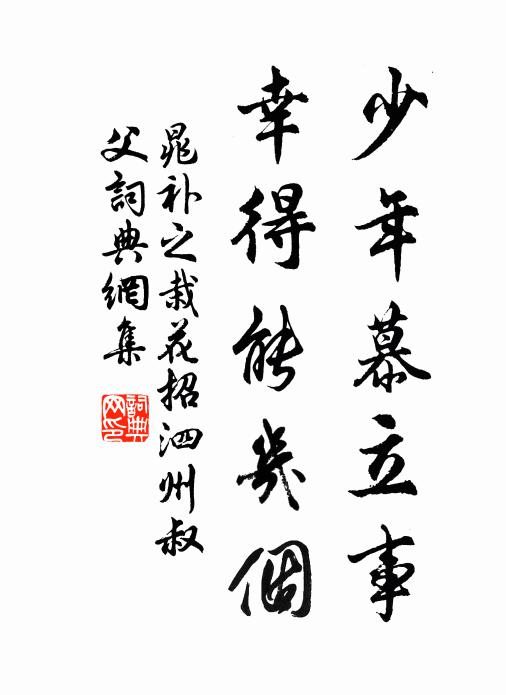 少年慕立事
幸得能幾個
晁补之栽花招泗州叔
父詞典網集
詞典網印